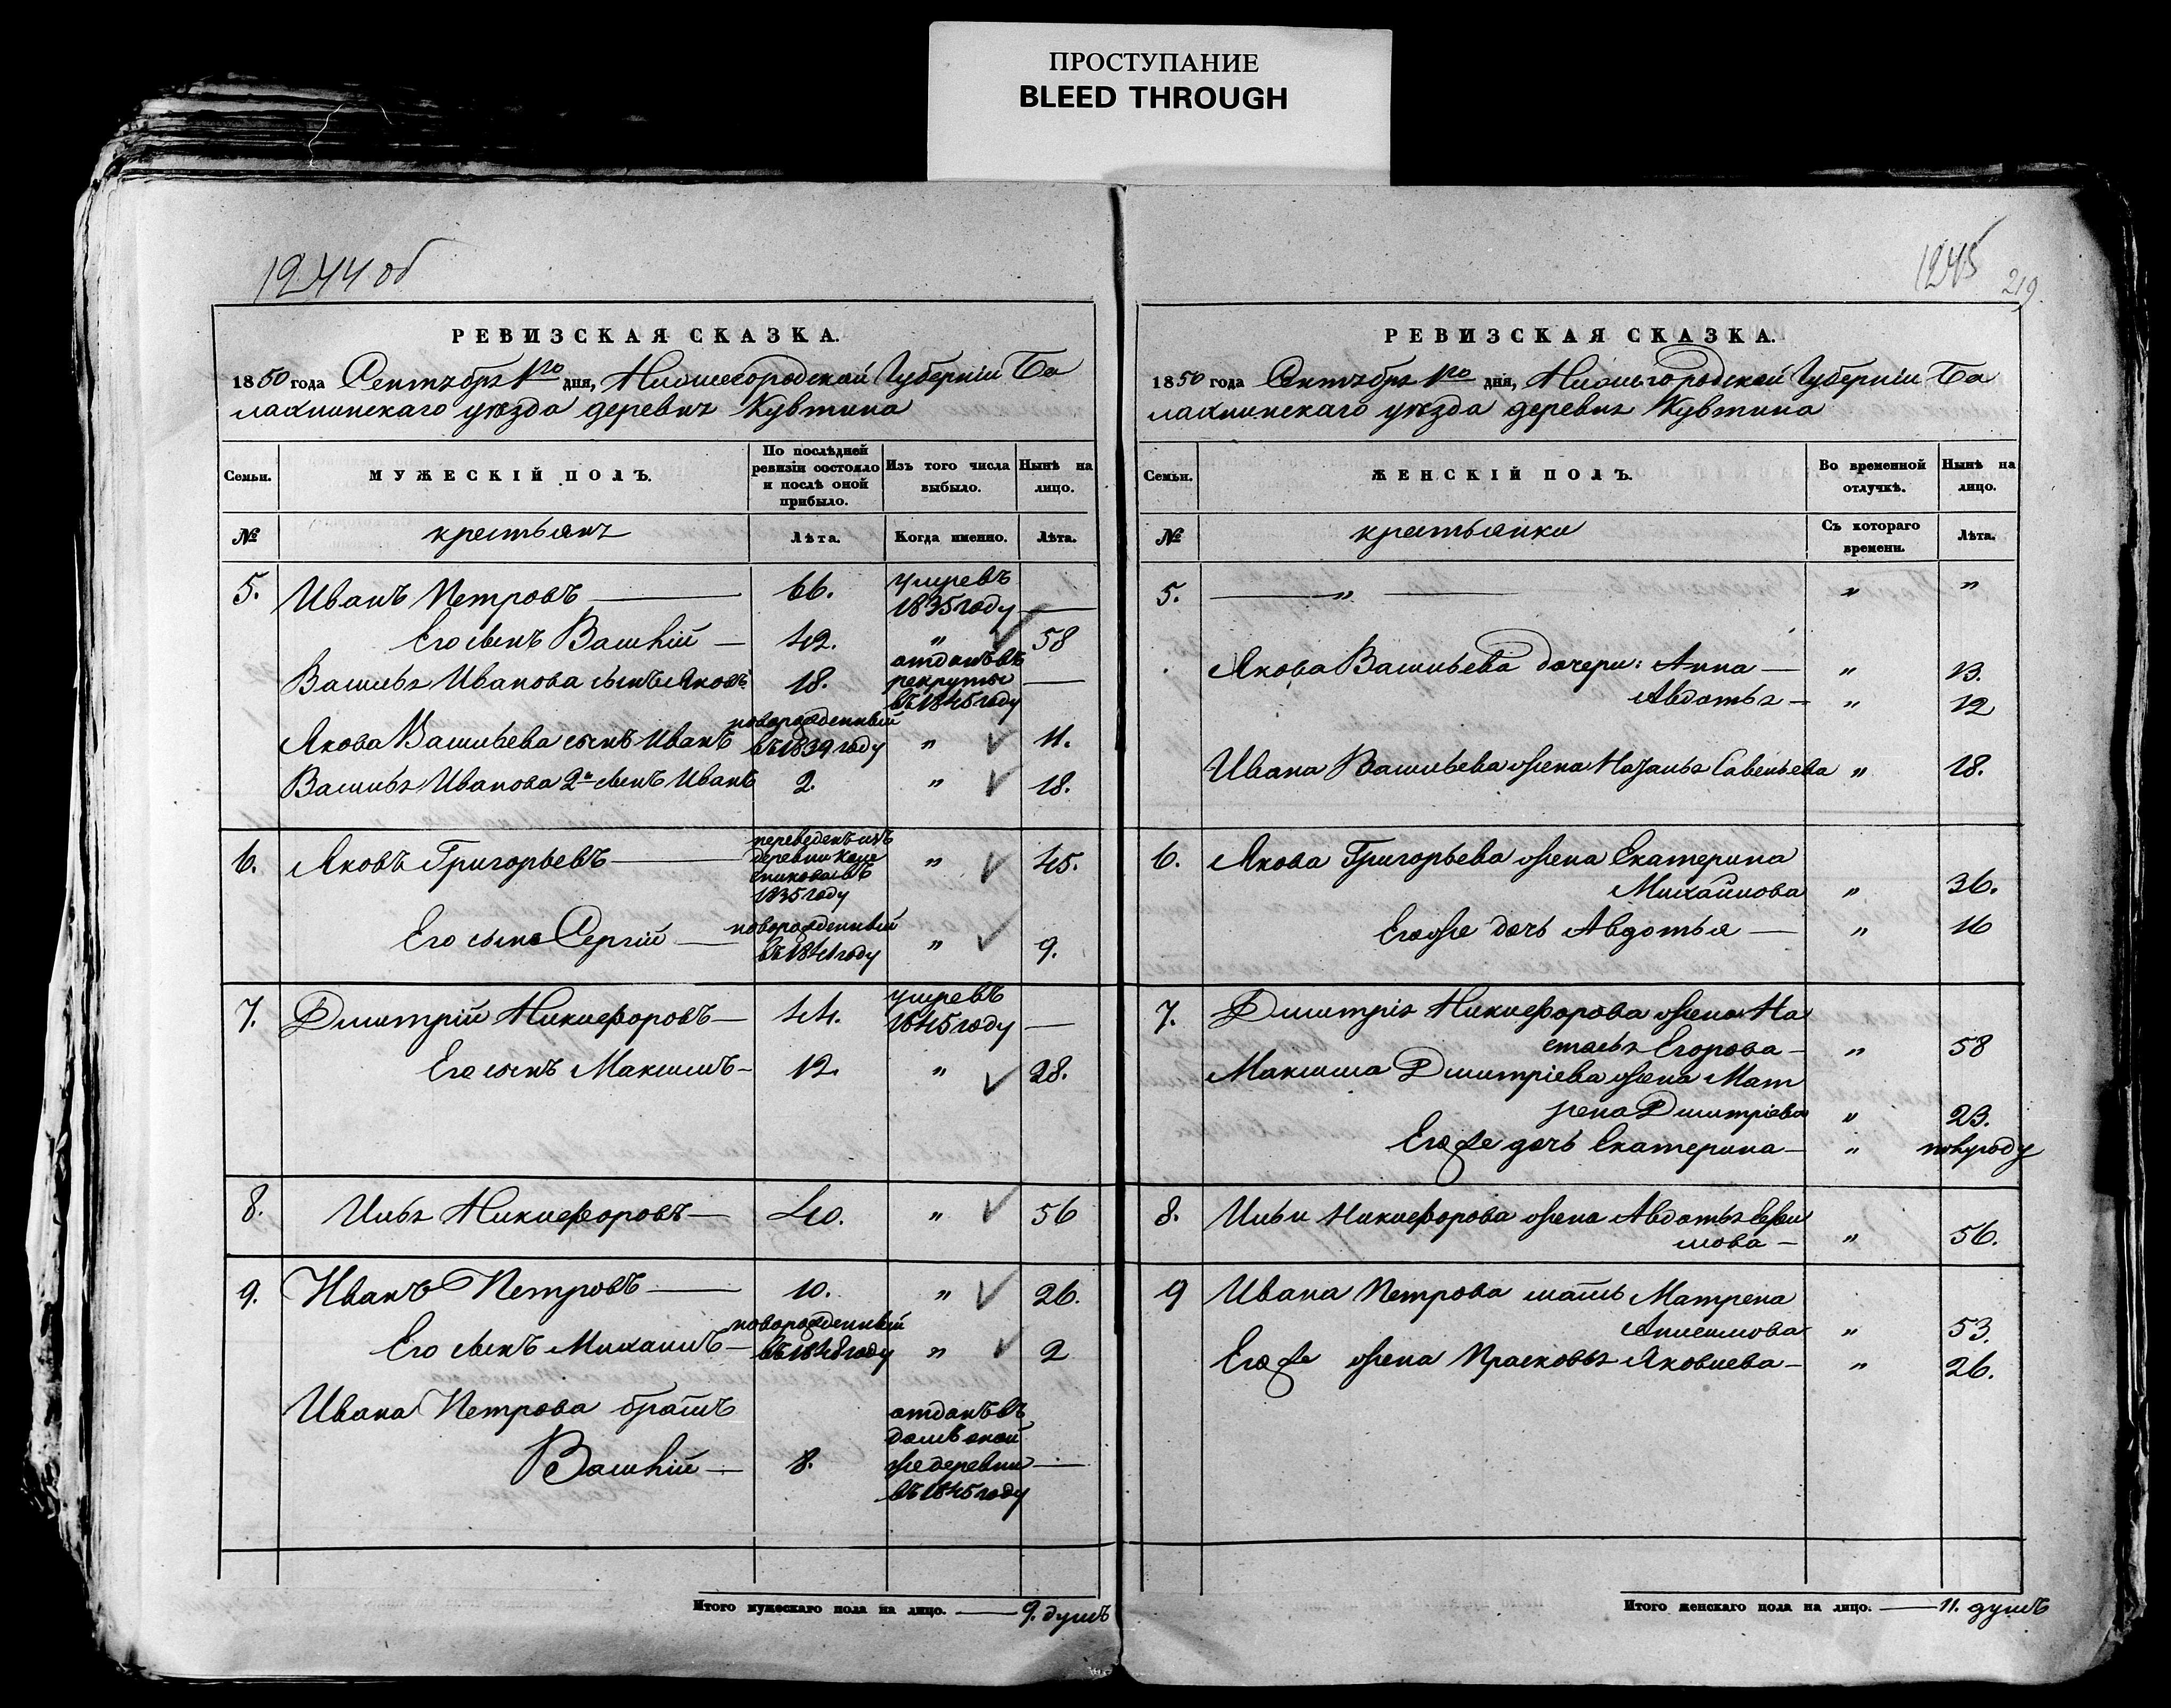 ПРОСТУПАНИЕ
BLEED THROUGH
1244 об
РЕВИЗСКАЯ СКАЗКА.
1850 года Сентября 1го дня, Нижегородской Губерніи Ба
лахнинскаго уѣзда деревни
Семьи.
МУЖЕСКІЙ ПОЛЪ.
По послѣдней
ревизіи состояло
и послѣ оной
прибыло.
Изъ того числа
выбыло.
Нынѣ на
лицо.
№
крестьянъ
Лѣта.
Когда именно.
Лѣта.
5. Иванъ Петровъ — 66. умревъ
1835 году —
Его сынъ Василій — 42. " 58
Василья Иванова сынъ Яковъ 18. отданъ въ
рекруты
въ 1845 году —
Якова Васильева сынъ Иванъ новорожденный
въ 1839 году " 11.
Василья Иванова 2й сынъ Иванъ 2. " 18.
6. Яковъ Григорьевъ — переведенъ изъ
деревни
въ
1835 году " 45.
Его сынъ Сергій — новорожденный
въ 1841 году " 9.
7. Дмитрій Никифоровъ — 44. умревъ
1845 году —
Его сынъ Максимъ — 12. " 28.
8. Илья Никифоровъ — 40. " 56
9. Иванъ Петровъ — 10. " 26.
Его сынъ Михаилъ — новорожденный
въ 1848 году " 2
Ивана Петрова братъ
Василій — 8. отданъ въ
домъ оной
же деревни
въ 1845 году —
Итого мужескаго пола на лицо. — 9. душъ
1245
219.
РЕВИЗСКАЯ СКАЗКА.
1850 года Сентября 1го дня, Нижегородской Губерніи Ба
лахнинскаго уѣзда деревни
Семьи.
ЖЕНСКІЙ ПОЛЪ.
Во временной
отлучкѣ.
Нынѣ на
лицо.
№
крестьянки
Съ котораго
времени.
Лѣта.
5. — " — " "
Якова Васильева дочери: Анна — " 13.
Авдотья — " 12
Ивана Васильева жена Наталья Савельева " 18.
6. Якова Григорьева жена Екатерина
Михайлова " 36.
Его же дочь Авдотья — " 16
7. Дмитрія Никифорова жена На
стасья Егорова — " 58
Максима Дмитріева жена Мат
рена Дмитріева " 23.
Его же дочь Екатерина — " полугоду
8. Ильи Никифорова жена Авдотья Ефи
мова — " 56.
9 Ивана Петрова мать Матрена
Анисимова " 53.
Его же жена Прасковья Яковлева — " 26.
Итого женскаго пола на лицо. — 11. душъ